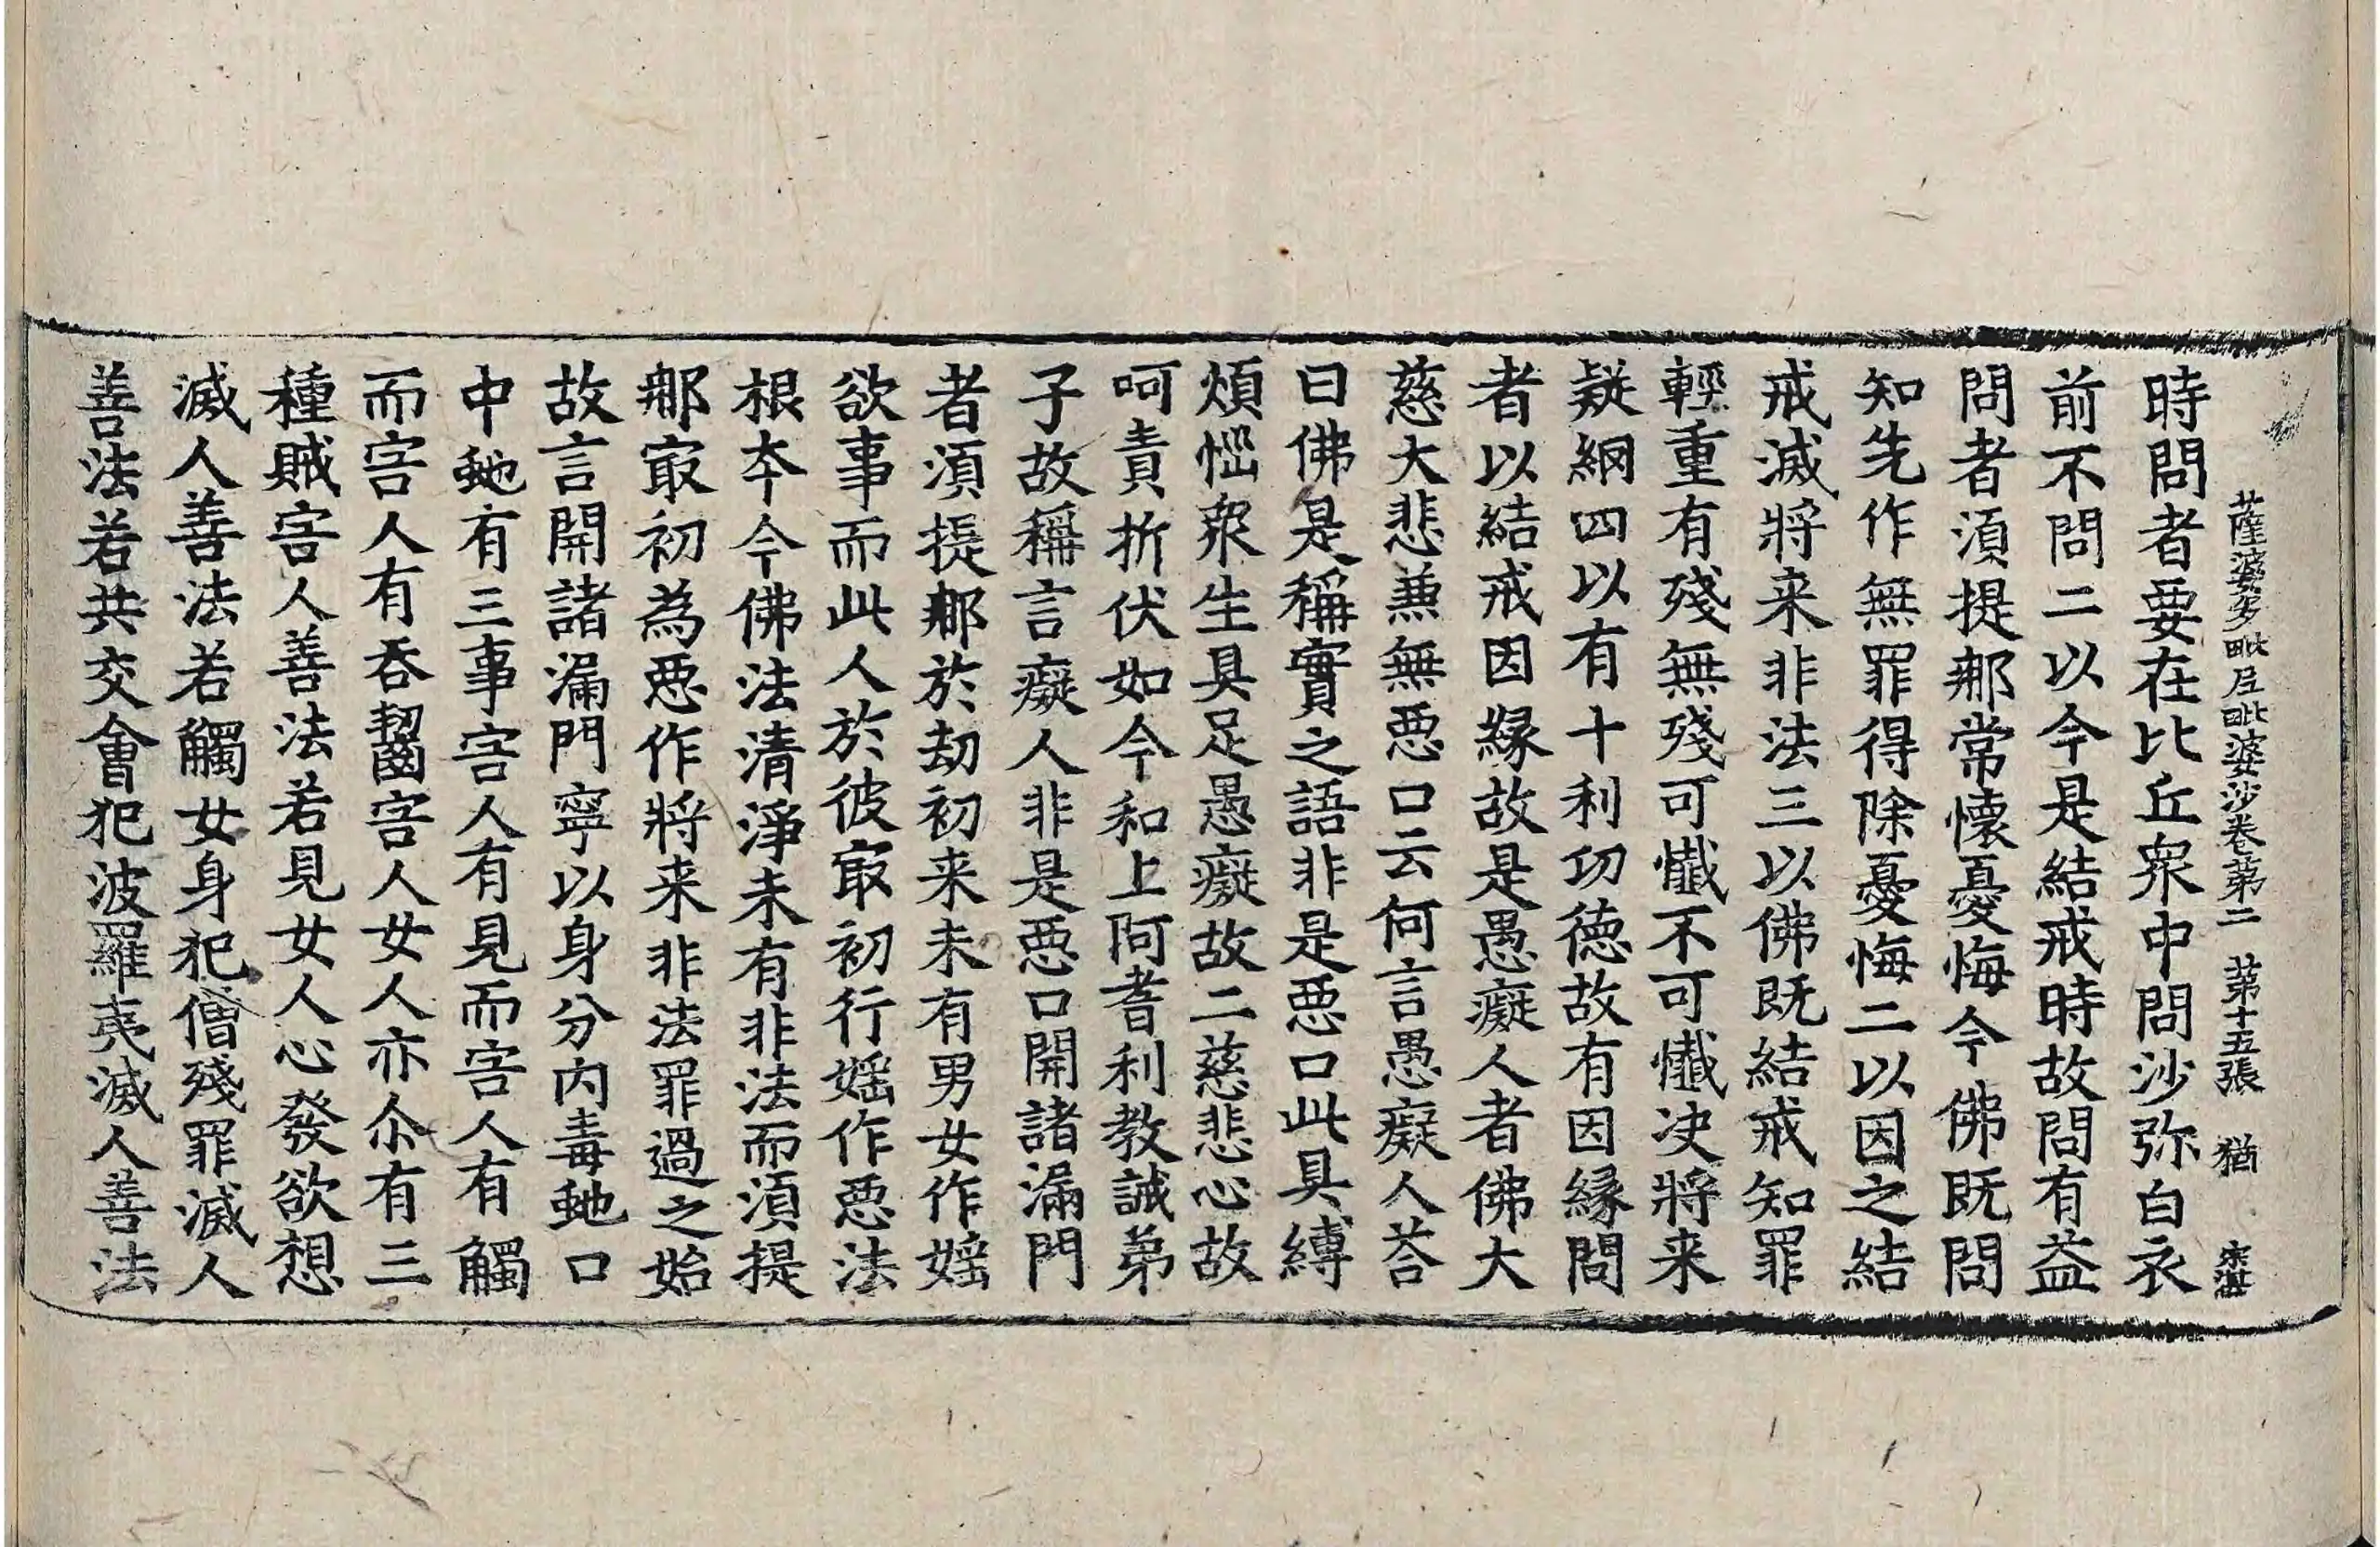 薩婆多毗尼毗婆沙卷第二　第十五張　猶　宋湛
時問者要在比丘衆中問沙弥白衣
前不問二以今是結戒時故問有益
問者湏提𨙻常懷憂悔今佛既問
知先作無罪得除憂悔二以因之結
戒滅將来非法三以佛既結戒知罪
輕重有殘無殘可懺不可懺决將来
疑網四以有十利功德故有因縁問
者以結戒因縁故是愚癡人者佛大
慈大悲兼無惡口云何言愚癡人荅
曰佛是稱實之語非是惡口此具縛
煩惱衆生具足愚癡故二慈悲心故
呵責折伏如今和上阿耆利教誡弟
子故稱言癡人非是惡口開諸漏門
者湏提𨙻於劫初来未有男女作婬
欲事而此人於彼㝡初行婬作惡法
根本今佛法清淨未有非法而湏提
𨙻㝡初為惡作將来非法罪過之始
故言開諸漏門寧以身分内毒虵口
中虵有三事害人有見而害人有觸
而害人有吞齧害人女人亦尒有三
種賊害人善法若見女人心發欲想
滅人善法若觸女身犯僧殘罪滅人
善法若共交會犯波羅夷滅人善法